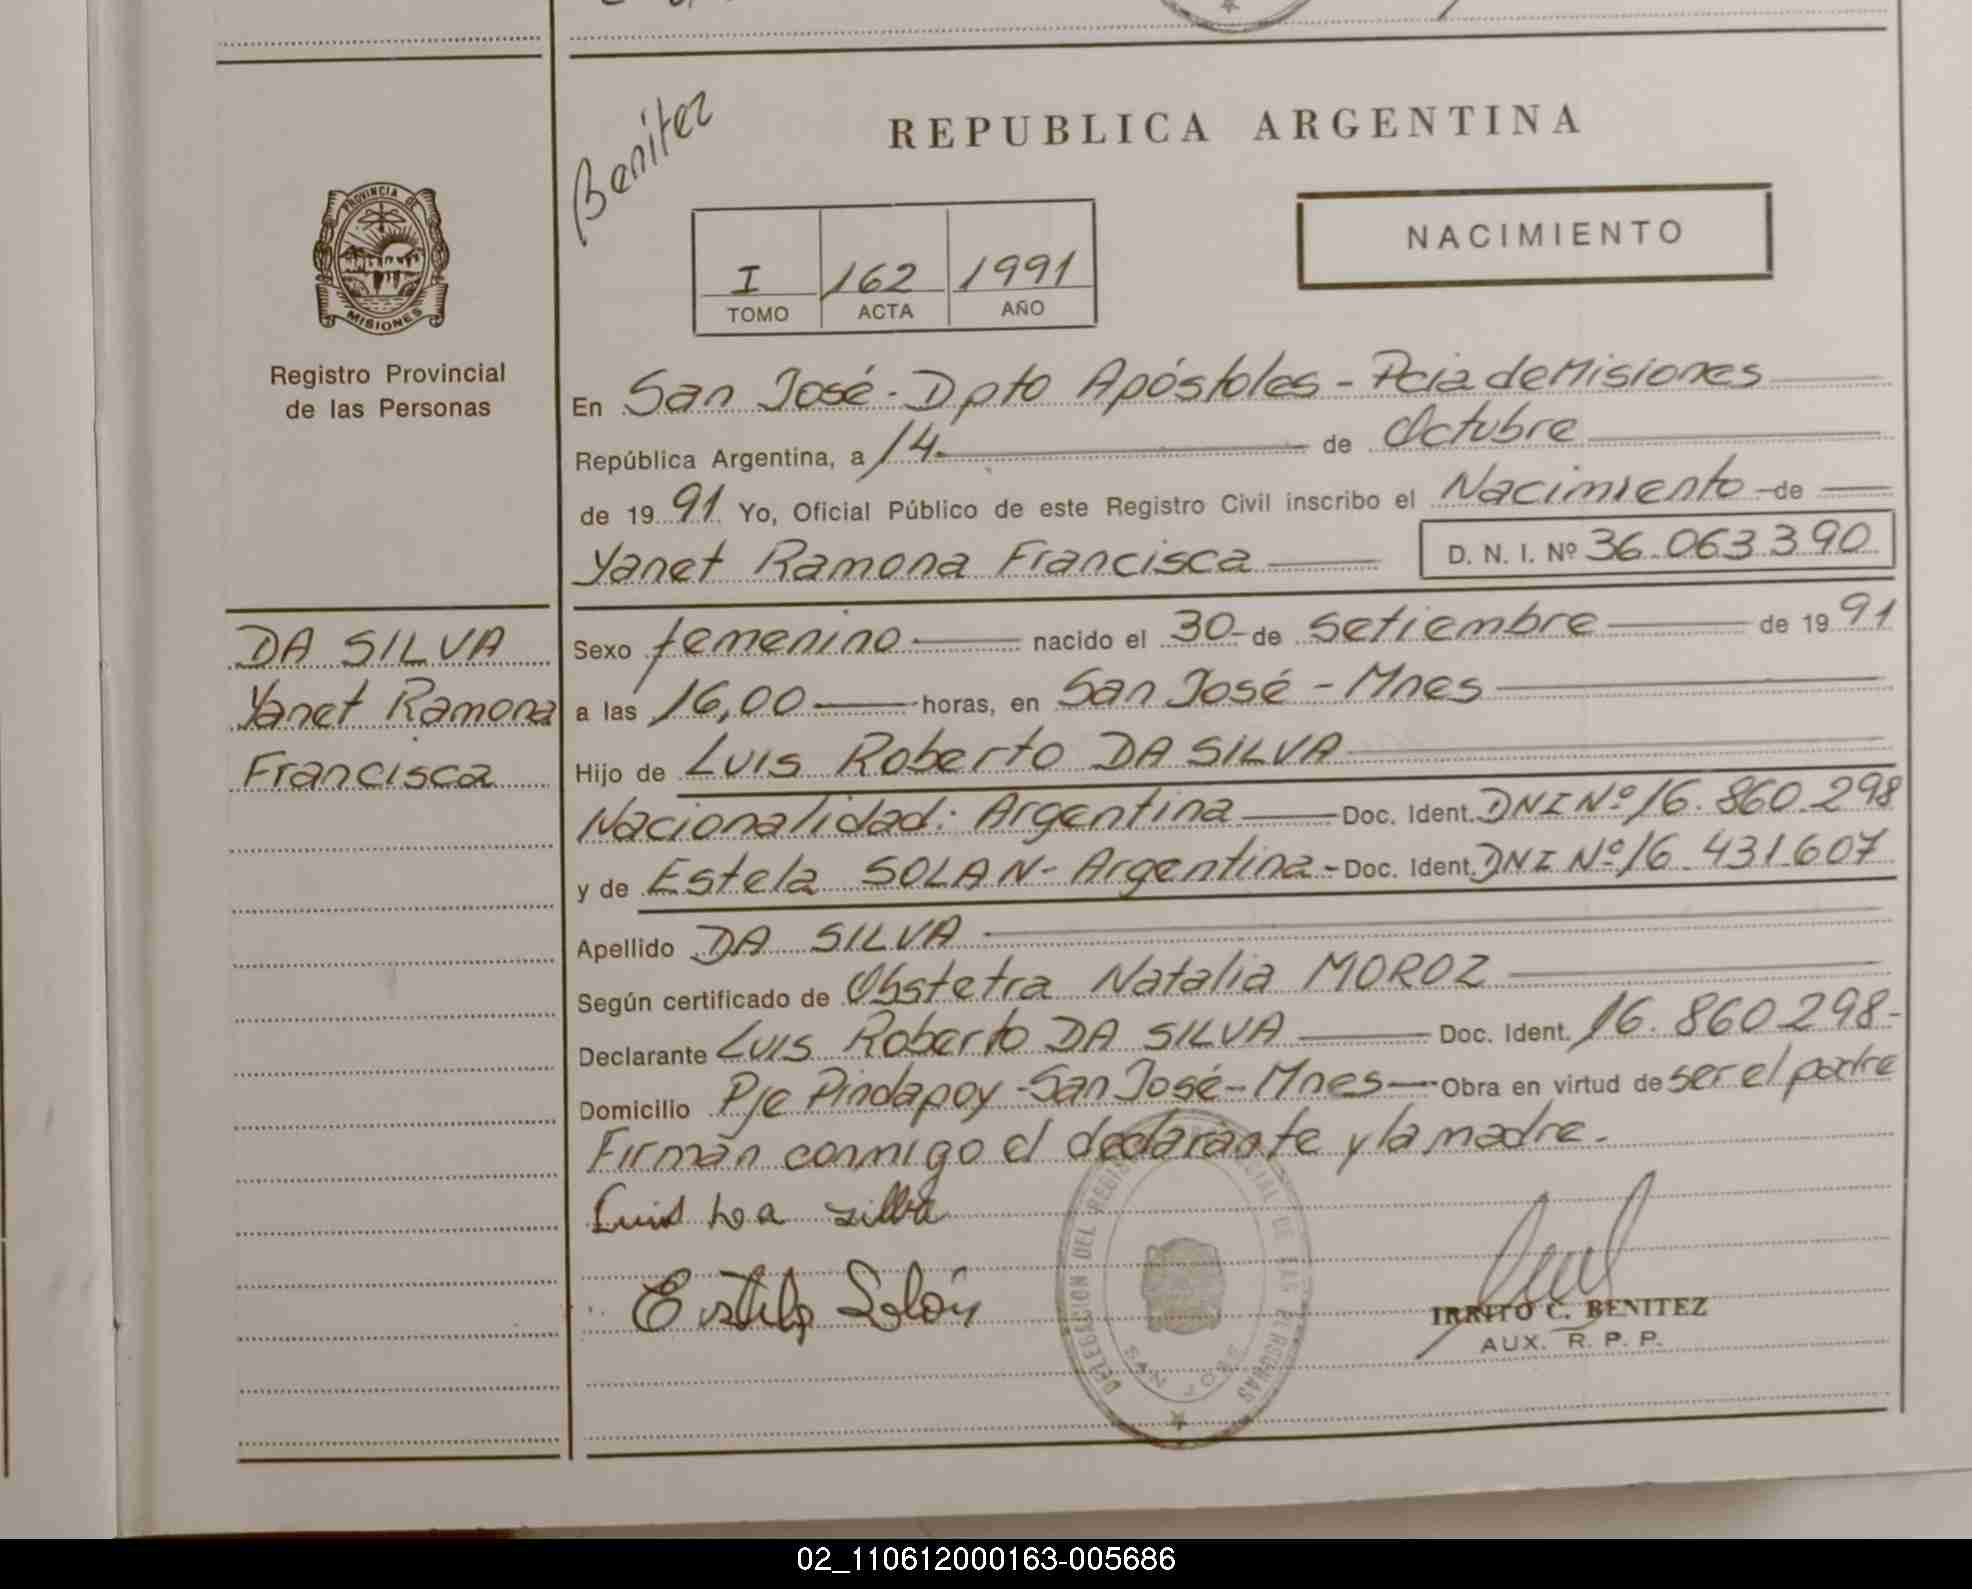 Benitez
REPUBLICA ARGENTINA
NACIMIENTO
I 162 1991
TOMO ACTA AÑO
PROVINCIA DE
MISIONES
Registro Provincial
de las Personas
En San José - Dpto Apóstoles - Pcia de Misiones
República Argentina, a 14 de Octubre
de 19 91 Yo, Oficial Público de este Registro Civil inscribo el Nacimiento de
Yanet Ramona Francisca D. N. I. Nº 36.063.390
DA SILVA
Yanet Ramona
Francisca
Sexo femenino nacido el 30 de Setiembre de 19 91
a las 16,00 horas, en San José - Mnes
Hijo de Luis Roberto DA SILVA
Nacionalidad: Argentina Doc. Ident. DNI Nº 16.860.298
y de Estela SOLAN - Argentina - Doc. Ident. DNI Nº 16.431.607
Apellido DA SILVA
Según certificado de Obstetra Natalia MOROZ
Declarante Luis Roberto DA SILVA Doc. Ident. 16.860.298-
Domicilio Pje Pindapoy - San José - Mnes Obra en virtud de ser el padre
Firmán conmigo el declarante y la madre.
Luis Da Silba
Estela Solán
DELEGACION DEL REGISTRO PROVINCIAL DE LAS PERSONAS
SAN JOSE
IRRITO C. BENITEZ
AUX. R. P. P.
02_110612000163-005686